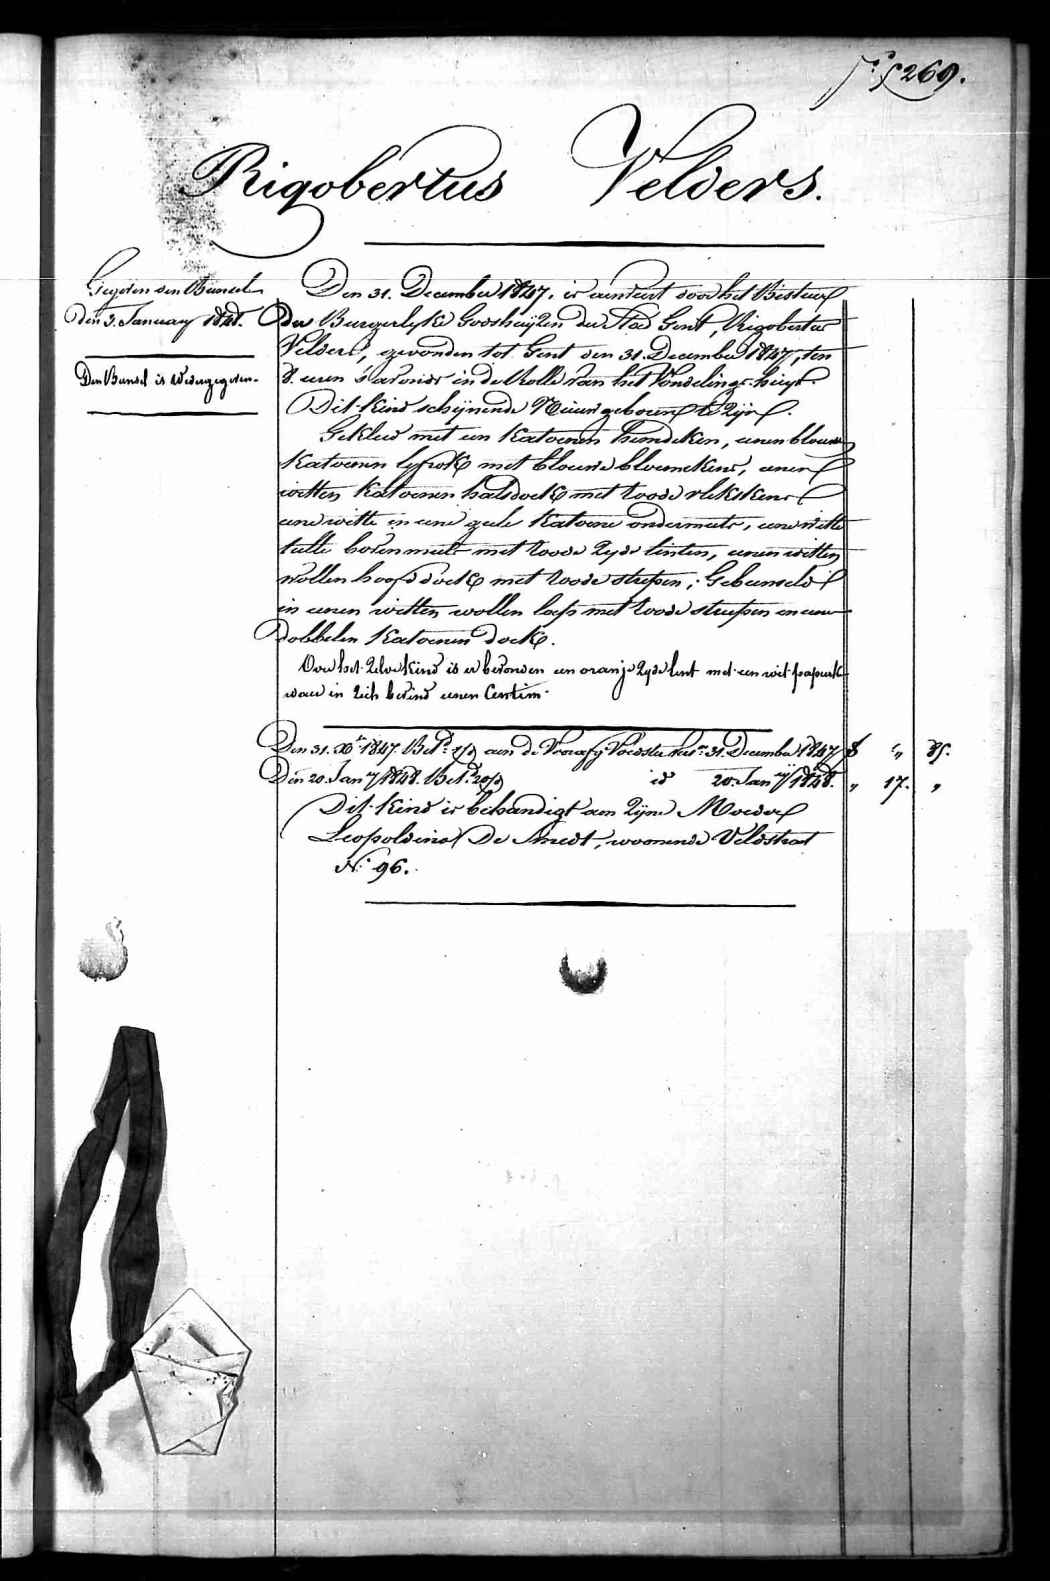 F.° 269.
Rigobertus Velders.
Gegeven den Bunsel
den 3. January 1848.
Den Bunsel is wedergegeven.
Den 31. December 1847, is aenveirt door het Bestuer
der Burgerlyke Godshuyzen der Stad Gent, Rigobertus
Velders, gevonden tot Gent den 31. December 1847, ten
8. uren s'avonds in de Rolle van het Vondelings-huys.
Dit kind schijnende Nieuwgeboren te zijn.
Gekleed met een katoenen hemdeken, eenen blouwen
katoenen lyfrok met blouwe bloemekens, eenen
witten katoenen halsdoek met roode vlekskens
eene witte en eene geele katoene ondermuts, eene witte
tulle bovenmuts met roode zyde linten, eenen witten
wollen hoofddoek met roode strepen; Gebunseld
in eenen witten wollen lap met roode strepen en eene
dobbelen katoenen doek.
Over het zelve kind is er bevonden een oranje zyde lint met een wit papierk
waer in zich bevind eenen Centim.
Den 31. Xb. 1847. Bet. aen de Voedster 31. December 1847 8 " 85.
Den 20. Jany 1848. Bet. id 20. Jany 1848. " 17. "
Dit kind is behandigt aen zijne Moeder
Leopoldina De Smedt, woonende Veldstraet
N.° 96.